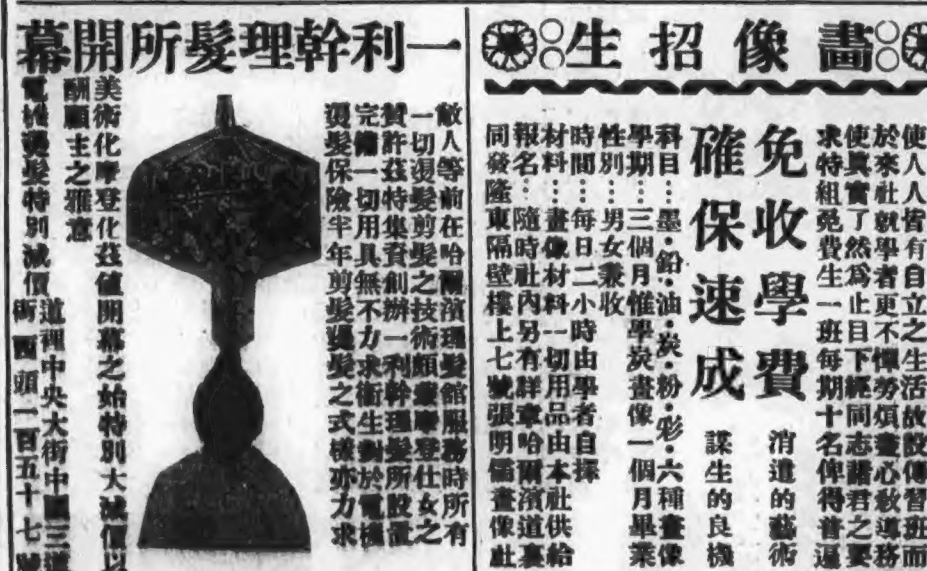 畫像招生
使人人皆有自立之生活故設傳習班而
於來社就學者更不憚勞煩盡心敎導務
使眞實了然爲止目下經同志諸君之要
求特組免費生一班每期十名俾得普遍
免收學費 消遣的藝術
確保速成 謀生的良機
科目：墨·鉛·油·炭·粉·彩·六種畫像
學期：三個月惟學炭畫像一個月畢業
性別：男女兼收
時間：每日二小時由學者自擇
材料：畫像材料一切用品由本社供給
報名：隨時社內另有詳章哈爾濱道裏
同發隆東隔壁樓上七號張明儒畫像社
一利幹理髮所開幕
敝人等前在哈爾濱理髮館服務時所有
一切燙髮剪髮之技術頗蒙摩登仕女之
贊許茲特集資創辦一利幹理髮所設置
完備一切用具無不力求衛生對於電機
燙髮保險半年剪髮燙髮之式樣亦力求
美術化摩登化茲値開幕之始特別大減價以
酬顧主之雅意
電機燙髮特別減價
道裡中央大街中國三道
街西頭一百五十七號